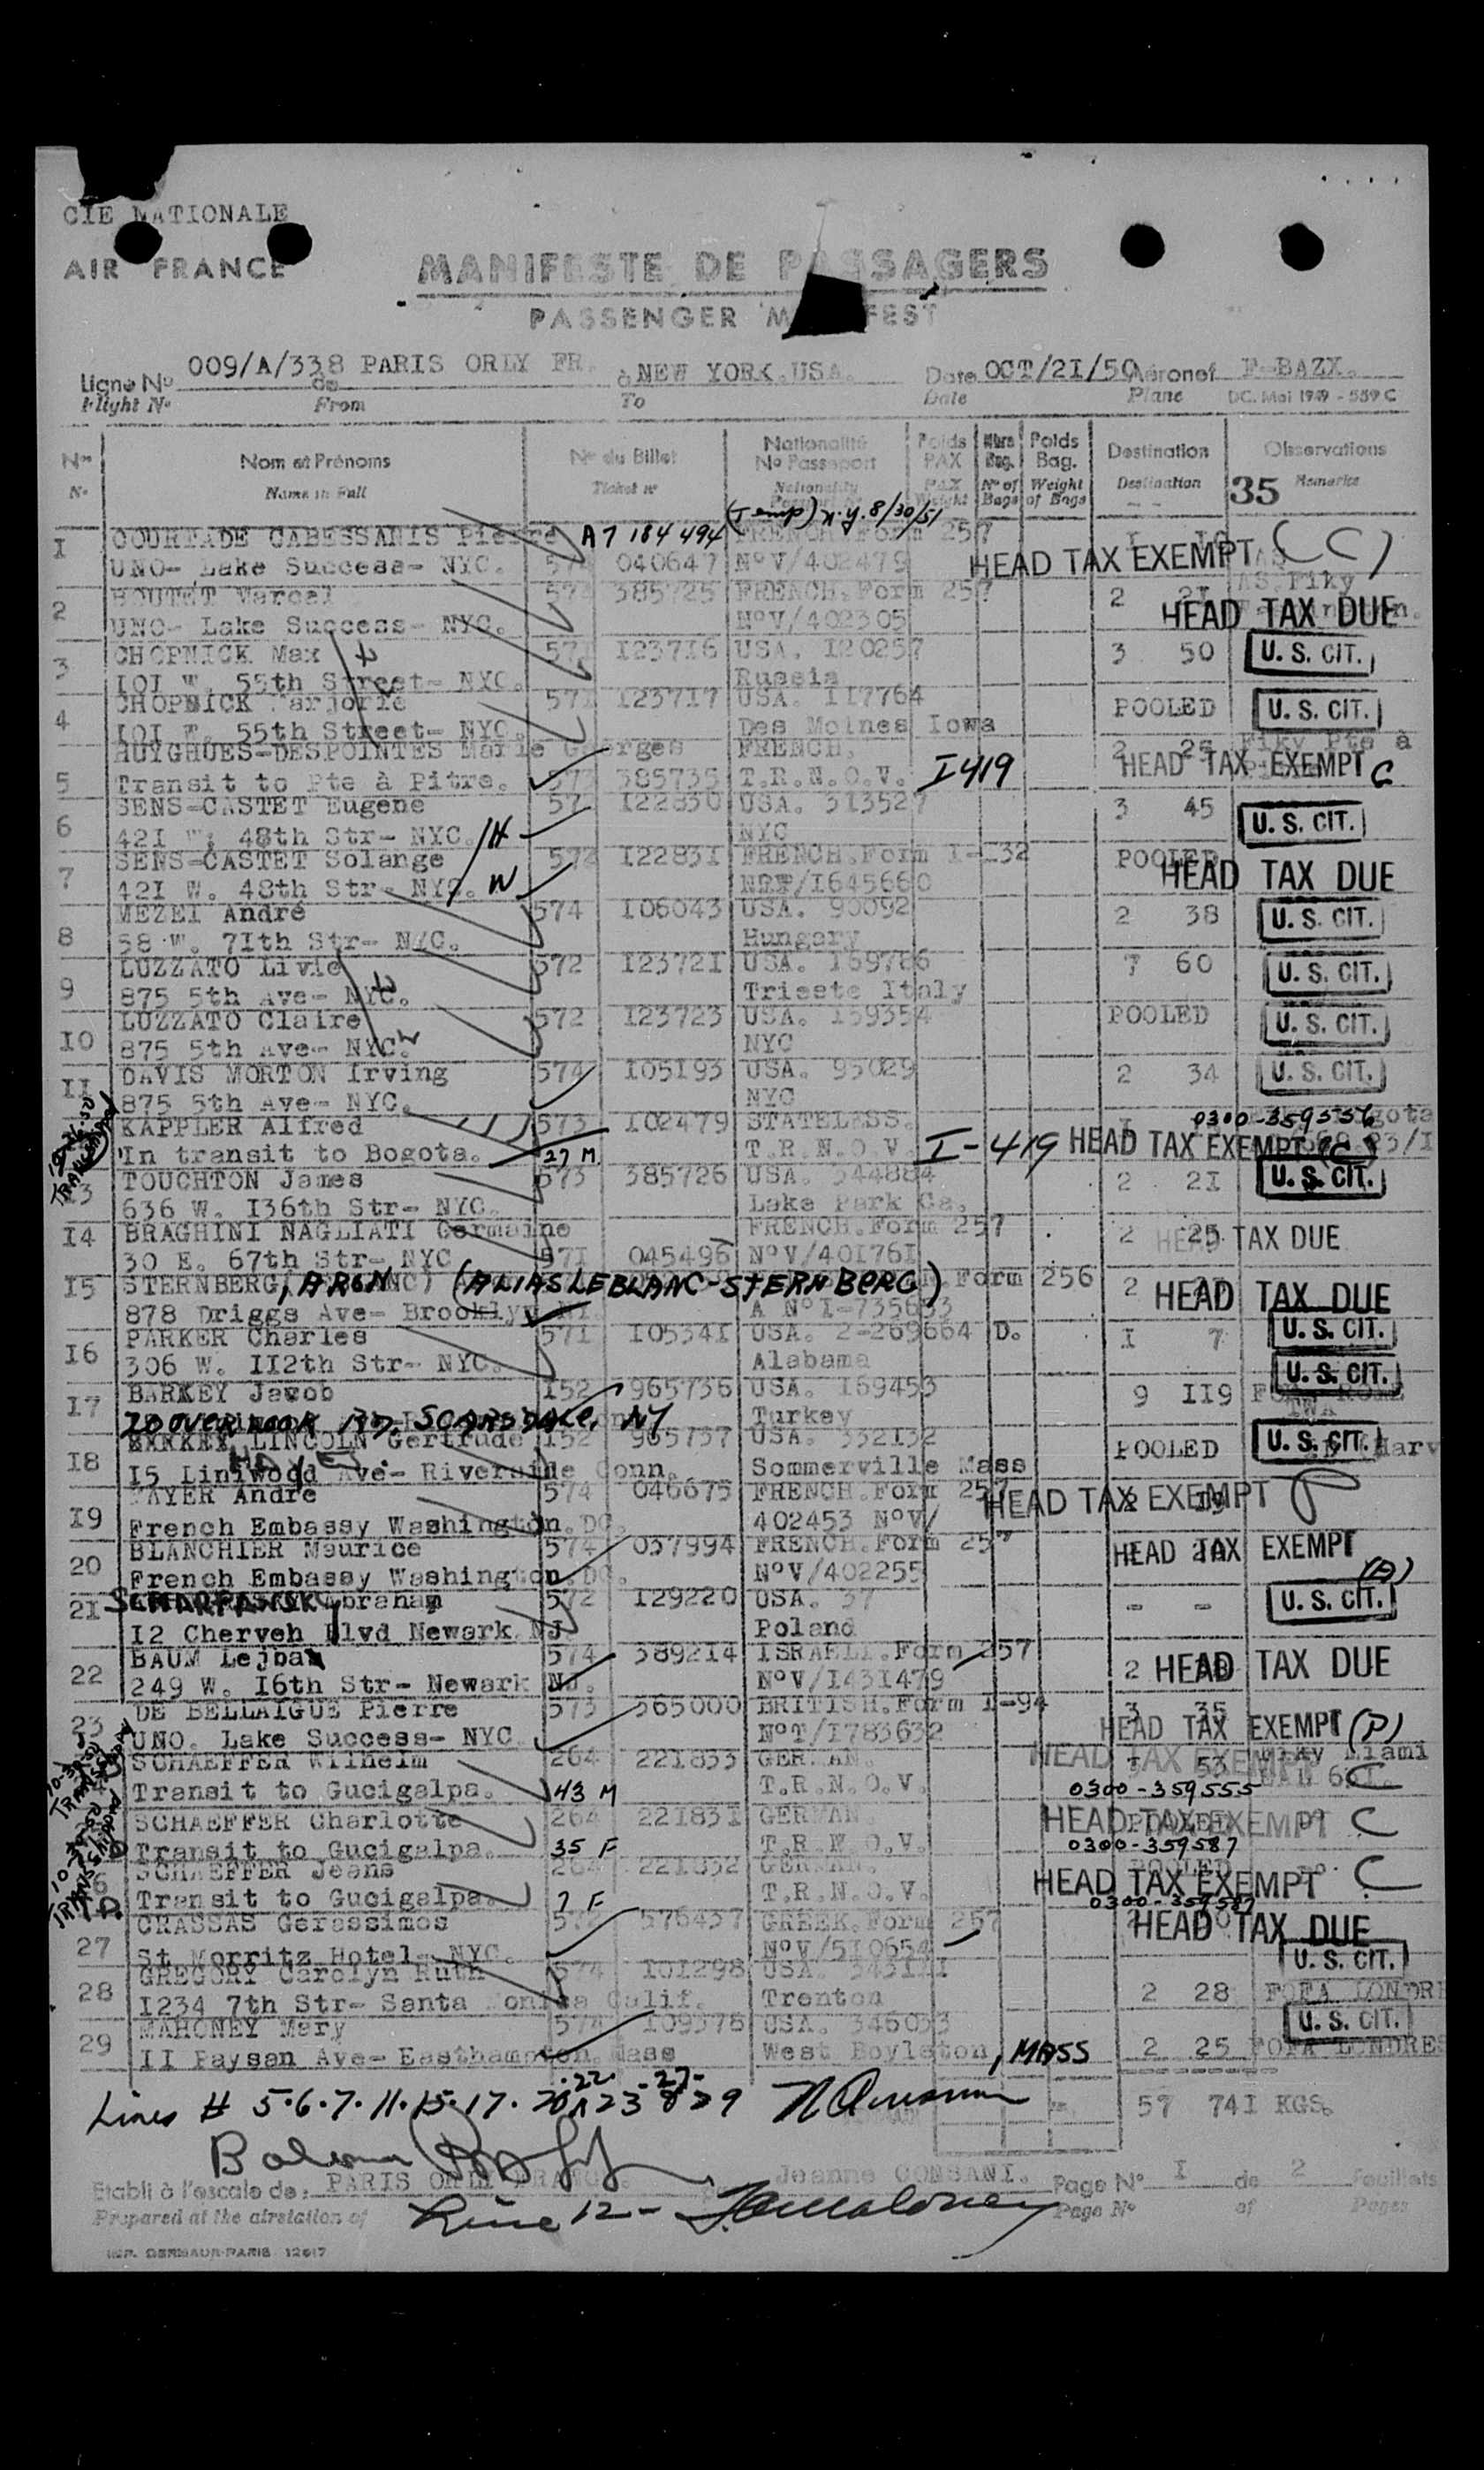 CIE NATIONALE
AIR FRANCE
MANIFESTE DE PASSAGERS
PASSENGER MANIFEST
Ligne No 009/A/338 de PARIS ORLY FR. à NEW YORK.USA. Date OCT/2I/50 Aéronef F-BAZX.
Flight No From To Date Plane DC. Mai 1949 - 559 C
Nos Nom et Prénoms No du Billet Nationalité No Passeport Poids PAX Nbre Bag. Poids Bag. Destination Observations
No Name in Full Ticket no Nationality No of Bags Weight of Bags Destination 35 Remarks
(I emp) N.Y. 8/30/51
I COURTADE CABESSANIS Pierre A7 184 494 FRENCH.Form 257
UNO- Lake Success- NYC. 574 040647 NºV/402479 HEAD TAX EXEMPT (C)
2 BOUTET Marcel 574 385725 FRENCH.Form 257 2 2I
UNO- Lake Success- NYC. NºV/402305 HEAD TAX DUE
3 CHOPNICK Max 571 123716 USA. I20257 3 50 U.S. CIT.
IOI W. 55th Street- NYC. Russia
4 CHOPNICK Marjorie 571 123717 USA. II7764 POOLED U.S. CIT.
IOI W. 55th Street- NYC. Des Moines Iowa
5 HUYGHUES-DESPOINTES Marie Georges FRENCH. 2 25
Transit to Pte à Pitre. 573 385735 T.R.N.O.V. I419 HEAD TAX EXEMPT C
6 SENS-CASTET Eugene 57 122830 USA. 313527 3 45 U.S. CIT.
42I W. 48th Str- NYC. H NYC
7 SENS-CASTET Solange 574 122831 FRENCH.Form I-I32 POOLED
42I W. 48th Str- NYC. W NRT/I645660 HEAD TAX DUE
8 MEZEI André 574 I06043 USA. 90092 2 38 U.S. CIT.
58 W. 7Ith Str- NYC. Hungary
9 LUZZATO Livio 572 I23721 USA. I69786 7 60 U.S. CIT.
875 5th Ave- NYC. Trieste Italy
IO LUZZATO Claire 572 I23723 USA. I59354 POOLED U.S. CIT.
875 5th Ave- NYC. W NYC
II DAVIS MORTON Irving 574 I05I93 USA. 95029 2 34 U.S. CIT.
875 5th Ave- NYC. NYC
KAPPLER Alfred 573 I02479 STATELESS. 0300-359556
In transit to Bogota. 27 M T.R.N.O.V. I-419 HEAD TAX EXEMPT (C)
TRANSSHIPMENT
TOUCHTON James 573 385726 USA. 344884 2 2I U.S. CIT.
636 W. I36th Str- NYC. Lake Park Ga.
I4 BRAGHINI NAGLIATI Germaine FRENCH.Form 257 2 25
30 E. 67th Str- NYC 571 045496 NºV/40I76I HEAD TAX DUE
I5 STERNBERG, ARON (ALIAS LEBLANC-STERNBERG) Form 256 2
878 Driggs Ave- Brooklyn A NºI-735653 HEAD TAX DUE
I6 PARKER Charles 571 I05341 USA. 2-269664 D. I 7 U.S. CIT.
306 W. II2th Str- NYC. Alabama
I7 BARKEY Jacob I52 965736 USA. I69453 9 II9 U.S. CIT.
20 OVERLOOK RD. SCARSDALE, NY Turkey
I8 LINCOLN Gertrude I52 965737 USA. 332I32 POOLED U.S. CIT.
I5 Liniwood Ave- Riverside Conn. Sommerville Mass
I9 MAYER André 574 046675 FRENCH.Form 257 HEAD TAX EXEMPT
French Embassy Washington.DC. 402453 NºV/
20 BLANCHIER Maurice 574 037994 FRENCH.Form 257
French Embassy Washington DC. NºV/402255 HEAD TAX EXEMPT (A)
2I Abraham 572 I29220 USA. 37 - - U.S. CIT.
I2 Cherveh Blvd Newark NJ. Poland
22 BAUM Lejba 574 389214 ISRAELI.Form 257 2
249 W. I6th Str- Newark NJ. NºV/I43I479 HEAD TAX DUE
23 DE BELLAIGUE Pierre 573 365000 BRITISH.Form I-94 3 35
UNO. Lake Success- NYC NºT/I783632 HEAD TAX EXEMPT (P)
SCHAEFFER Wilhelm 264 221833 GERMAN. HEAD TAX EXEMPT C
Transit to Gucigalpa. 43 M T.R.N.O.V. 0300-359555
SCHAEFFER Charlotte 264 22I83I GERMAN. HEAD TAX EXEMPT C
Transit to Gucigalpa. 35 F T.R.N.O.V. 0300-359587
SCHAEFFER Jeans 264 22I832 GERMAN. POOLED
Transit to Gucigalpa. 7 F T.R.N.O.V. HEAD TAX EXEMPT C
0300-359587
27 CHASSAS Gerassimos 576437 GREEK.Form 257
St Morritz Hotel- NYC. NºV/5I0654 HEAD TAX DUE
28 GREGORY Carolyn Ruth 574 I0I298 USA. 343III 2 28 U.S. CIT. FOFA LONDRE
I234 7th Str- Santa Monica Calif. Trenton
29 MAHONEY Mary 574 I09378 USA. 346033 2 25 U.S. CIT. FOFA LONDRES
II Paysan Ave- Easthampton Mass West Boylston, MASS
Lines # 5.6.7.11.15.17.20 22 23 27 & 29
57 74I KGS.
Etabli à l'escale de: PARIS ORLY FRANCE. Jeanne CONSANI. Page No I de 2 Feuillets
Prepared at the airstation of Line 12 - Page No of Pages
IMP. DERMAUR-PARIS 12617